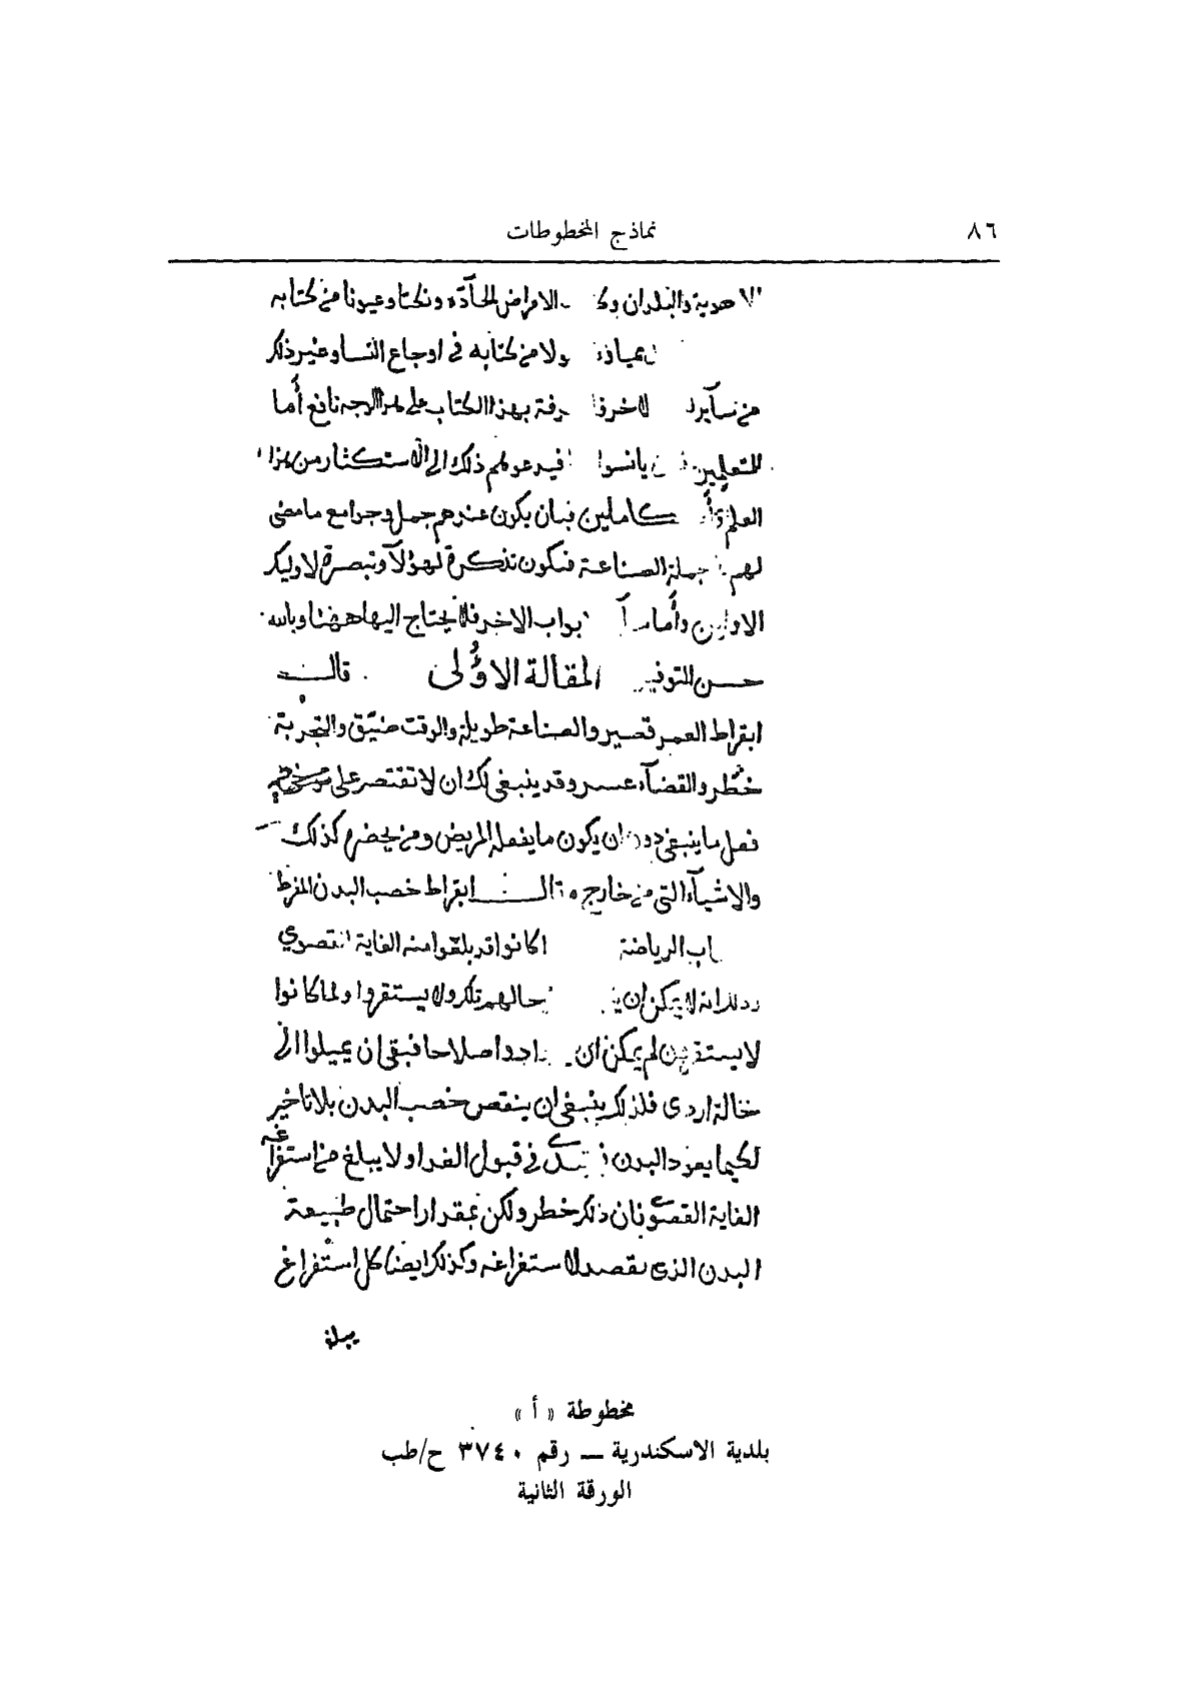 ٨٦
نماذج المخطوطات
الاهوية والبلدان الامراض الحآدّه ونكتا وعيونا من كتابه
ولا من كتابه في اوجاع النسا وغير ذلك
من سآير بهذا الكتاب على هذا الوجه نافع أما
للمتعلمين يانسوا فيدعوهم ذلك الى الاستكثار من هذا
العلم كاملين فبان يكون عندهم جمل وجوامع ما مضى
لهم جملة الصناعة فتكون تذكرة لهؤلآ وتبصرة لاوليك
الاولين وأما بواب الاخر فلا يحتاج اليها ههنا وبالله
حسن التوفيق المقالة الاوُلى قال
ابقراط العمر قصير والصناعة طويلة والوقت ضيّق والتجربة
خطر والقضآء عسر وقد ينبغي لك ان لا تقتصر على توخي
فعل ما ينبغي دون ان يكون ما يفعله المريض ومن يحضره كذلك
والاشيآء التي من خارج قال ابقراط خصب البدن المفرط
الرياضة كانوا قد بلغوا منه الغاية القصوي
لا يمكن ان حالهم تلك ولا يستقروا ولما كانوا
لا يستقرون لم يمكن ان اصلاحا فبقي ان يميلوا الى
حالة اردى فلذلك ينبغي ان ينقص خصب البدن بلا تاخير
لكيما يعود البدن في قبول الغدا ولا يبلغ من استفراغه
الغاية القصوى فان ذلك خطر ولكن بمقدار احتمال طبيعة
البدن الذى يقصد لاستفراغه وكذلك ايضا كل استفراغ
يبلغ
مخطوطة « أ »
بلدية الاسكندرية ــ رقم ٣٧٤٠ ح/طب
الورقة الثانية